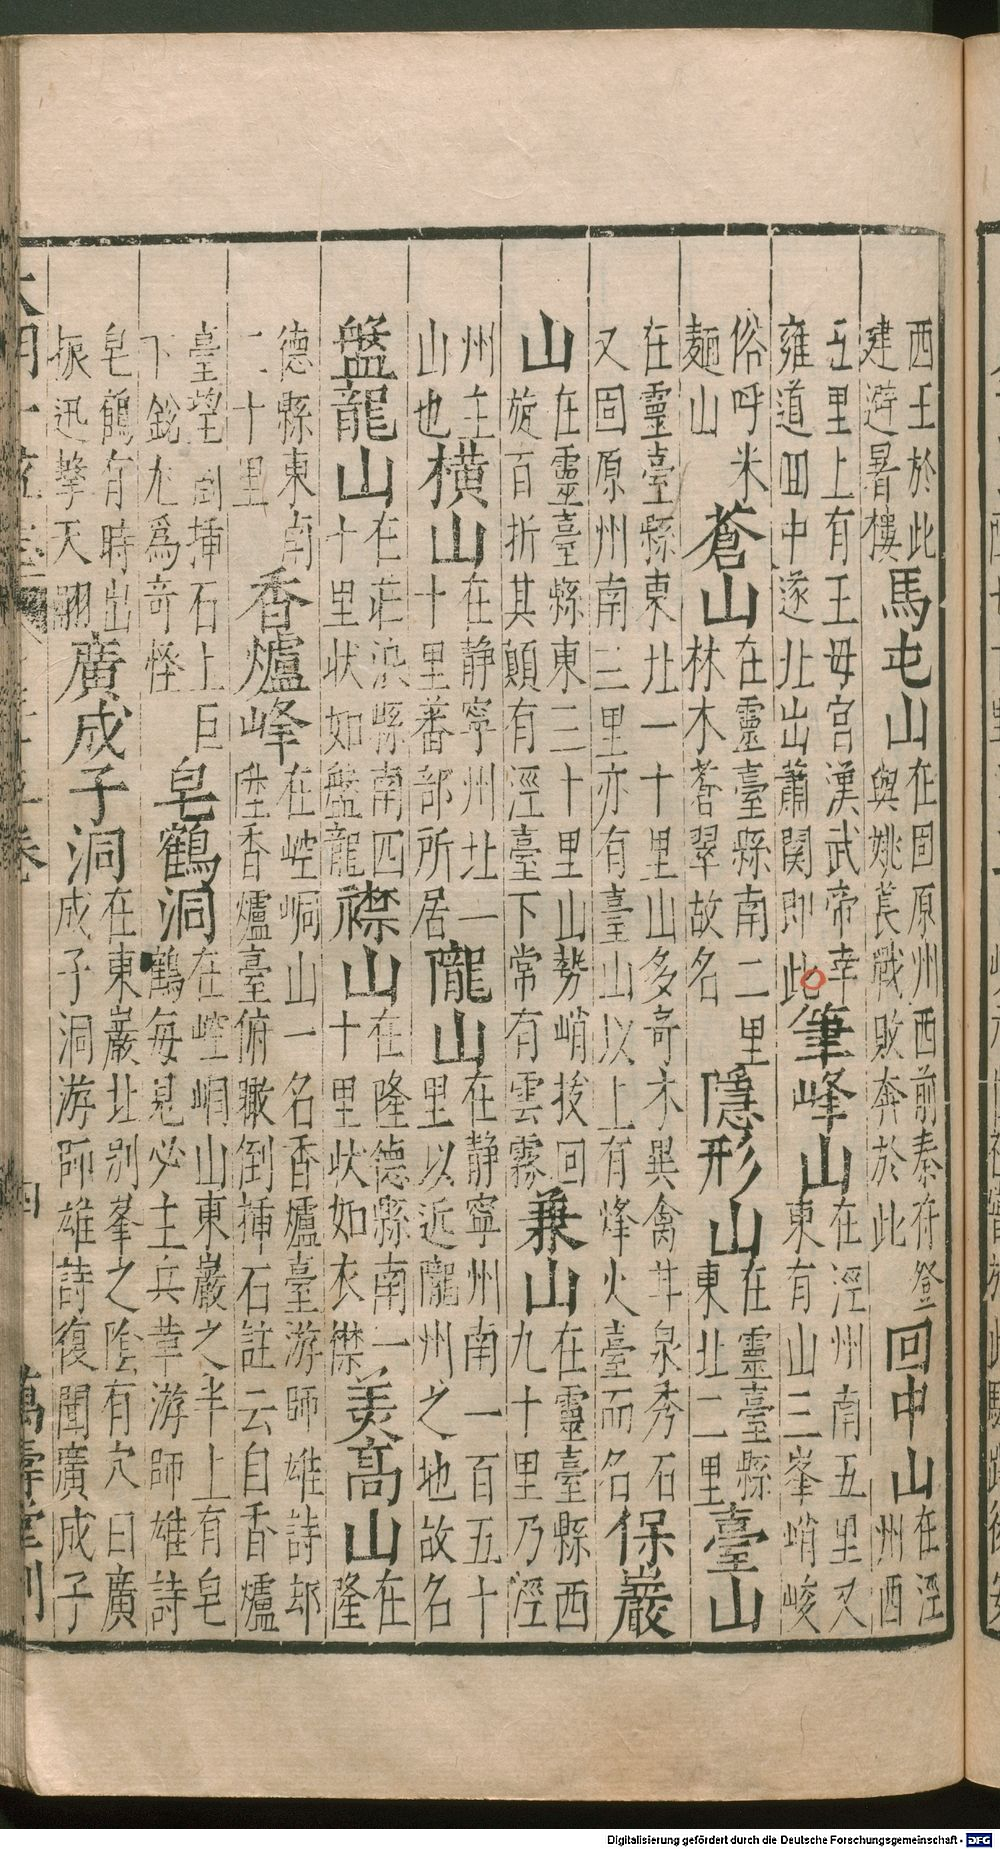 西王於此建避暑樓馬屯山在固原州西前秦苻登與姚萇戰敗奔於此回中山在涇州西
五里上有王母宮漢武帝幸雍道回中遂北出蕭関即此筆峰山在涇州南五里又東有山三峯峭峻
俗呼米麵山蒼山在靈臺縣南二里林木蒼翠故名隱形山在靈臺縣東北二里臺山
在靈臺縣東北一十里山多奇木異禽甘泉秀石又固原州南三里亦有臺山以上有烽火臺而名保巖
山在靈臺縣東三十里山勢峭拔回旋百折其顛有涇臺下常有雲霧兼山在靈臺縣西九十里乃涇
州主山也橫山在静寧州北一十里蕃部所居隴山在静寧州南一百五十里以近隴州之地故名
盤龍山在莊浪縣南四十里状如盤龍襟山在隆德縣南一十里状如衣襟美高山在隆
德縣東南二十里香爐峰在崆峒山一名香爐臺游師雄詩陞香爐臺俯瞰倒揷石註云自香爐
臺望倒揷石上巨下銳尤爲奇怪皂鶴洞在崆峒山東巖之半上有皂鶴每見必主兵革游師雄詩
皂鶴有時出振迅擎天翮廣成子洞在東巖北別峯之陰有穴曰廣成子洞游師雄詩復聞廣成子
大明一統志 卷 四 萬壽堂刊
Digitalisierung gefördert durch die Deutsche Forschungsgemeinschaft - DFG